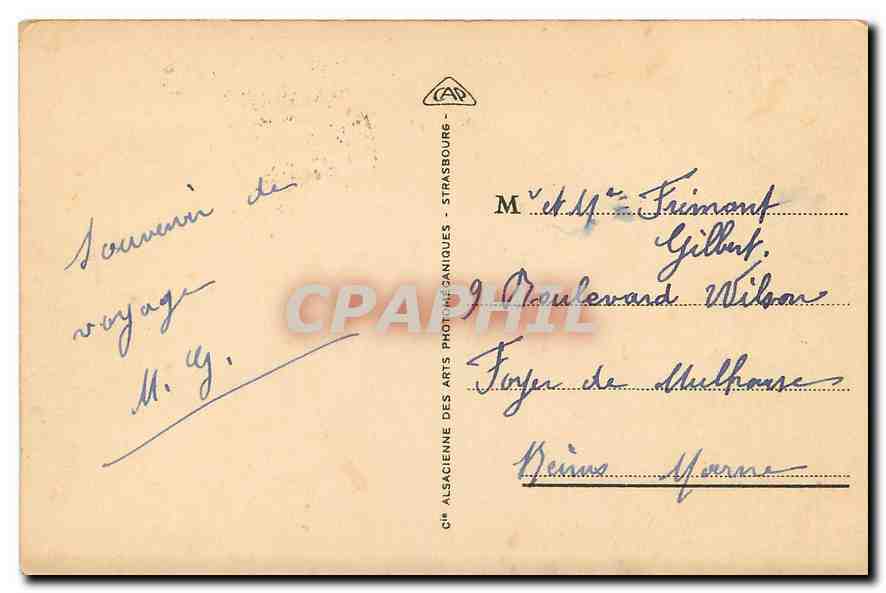 CAP
Souvenir de
voyage
M. G.
Cie ALSACIENNE DES ARTS PHOTOMÉCANIQUES - STRASBOURG -
Mr et Me Frémont
Gilbert.
9 Boulevard Wilson
Foyer de Mulhouse
Reims Marne
CPAPHIL